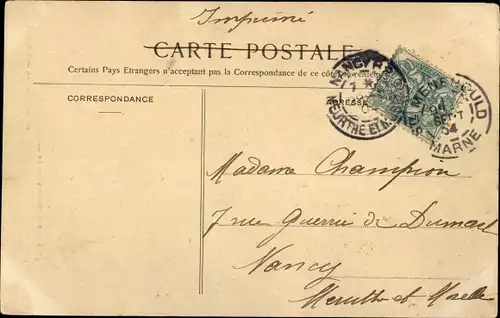 Imprimé
CARTE POSTALE
Certains Pays Etrangers n'acceptent pas la Correspondance de ce côté
CORRESPONDANCE
NANCY
MEURTHE ET M
STE MENEHOULD
SEPT
04
MARNE
Madame Champion
7 rue Guerrier de Dumast
Nancy
Meurthe et Moselle